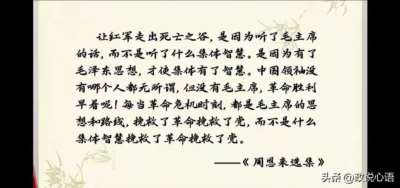 让红军走出死亡之谷，是因为听了毛主席
的话，而不是听了什么集体智慧。是因为有了
毛泽东思想，才使集体有了智慧。中国领袖没
有哪个人都无所谓，但没有毛主席，革命胜利
早着呢！每当革命危机时刻，都是毛主席的思
想和路线，挽救了革命挽救了党，而不是什么
集体智慧挽救了革命挽救了党。
——《周恩来选集》
头条 @政说心语